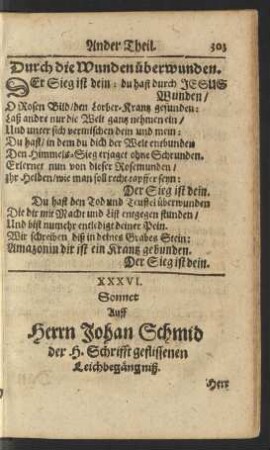 Ander Theil. 303
Durch die Wunden überwunden.
DEr Sieg ist dein: du hast durch JESUS
Wunden/
O Rosen Bild/den Lorber-Krantz gefunden:
Laß andre nur die Welt gantz nehmen ein/
Und unter sich vermischen dein und mein:
Du hast/ in dem du dich der Welt enebunden
Den Himmels-Sieg erjaget ohne Schrunden.
Erlernet nun von dieser Rosemunden/
Ihr Helden/wie man soll recht tapffer seyn:
Der Sieg ist dein.
Du hast den Tod und Teuffel überwunden
Die dir mit Macht und List entgegen stunden/
Und bist numehr entledigt deiner Pein.
Wir schreiben diß in deines Grabes Stein:
Amazonin dir ist ein Krantz gebunden.
Der Sieg ist dein.
XXXVI.
Sonnet
Auff
Herrn Johan Schmid
der H. Schrifft geflissenen
Leichbegängniß.
Herr